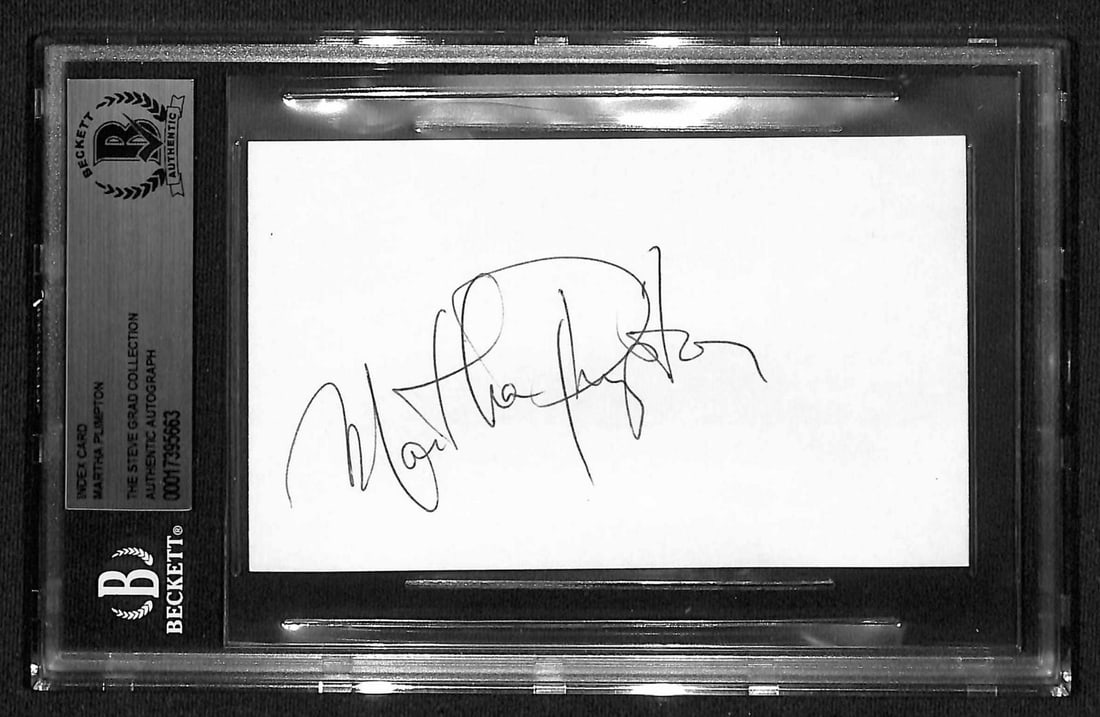 BECKETT
B
AUTHENTIC
INDEX CARD
MARTHA PLIMPTON
THE STEVE GRAD COLLECTION
AUTHENTIC AUTOGRAPH
00017395663
B
BECKETT®
Martha Plimpton